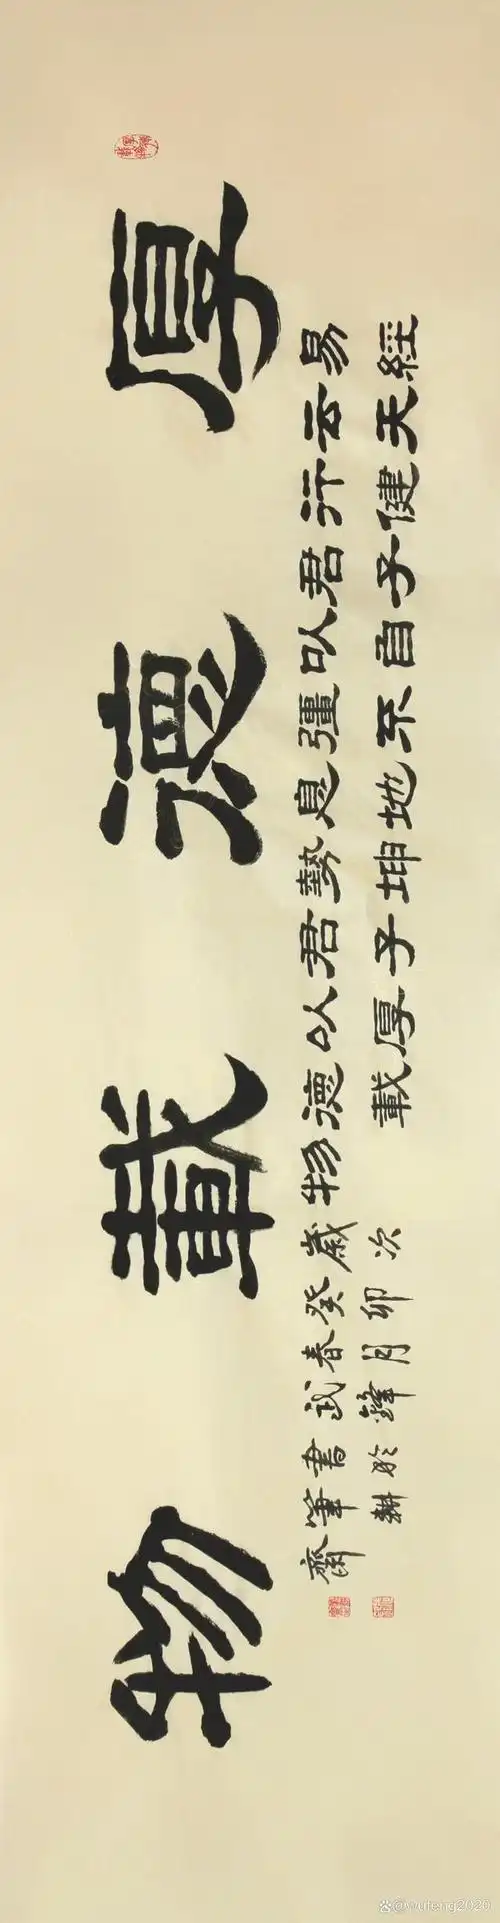 厚德載物
易經
云天
行健
君子
以自
彊不
息地
勢坤
君子
以厚
德載
物
歲次
癸卯
春月
武鋒
書於
筆耕
齋
@wufeng2020